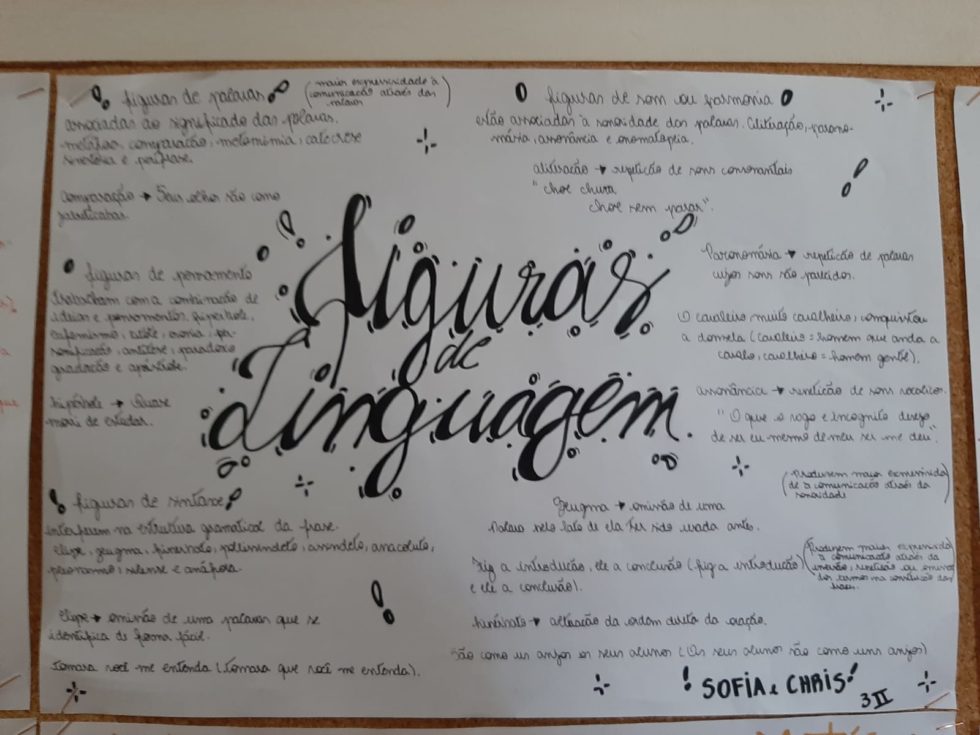 figuras de palavras
(maior expressividade à
comunicação através das
palavras)
associadas ao significado das palavras.
metáfora, comparação, metonímia, catacrese
sinestesia e perífrase.
comparação → Seus olhos são como
jabuticabas.
figuras de pensamento
trabalham com a combinação de
ideias e pensamentos. hipérbole,
eufemismo, litote, ironia, per-
sonificação, antítese, paradoxo
gradação e apóstrofe.
hipérbole → Quase
morri de estudar.
figuras de sintaxe
interferem na estrutura gramatical da frase.
elipse, zeugma, hipérbato, polissíndeto, assíndeto, anacoluto,
pleonasmo, silepse e anáfora.
Elipse → omissão de uma palavra que se
identifica de forma fácil.
Tomara você me entenda (Tomara que você me entenda).
Figuras
de
Linguagem.
figuras de som ou harmonia
estão associadas à sonoridade das palavras. Aliteração, parono-
másia, assonância e onomatopeia.
aliteração → repetição de sons consonantais
"chove chuva
chove sem parar".
Paronomásia → repetição de palavras
cujos sons são parecidos.
O cavaleiro muito cavalheiro, conquistou
a donzela (cavaleiro = homem que anda a
cavalo, cavalheiro = homem gentil).
assonância → repetição de sons vocálicos.
"O que o vago e incógnito desejo
de ser eu mesmo de meu ser me deu".
(Produzem maior expressivida
de à comunicação através da
sonoridade
Zeugma → omissão de uma
palavra pelo fato de ela ter sido usada antes.
Fiz a introdução, ele a conclusão (fiz a introdução
e ele a conclusão).
(Produzem maior expressivida
à comunicação através da
inversão, repetição ou omissão
dos termos na construção das
frases.
hipérbato → alteração da ordem direta da oração.
São como uns anjos os seus alunos (Os seus alunos são como uns anjos)
SOFIA e CHRIS!
3 II